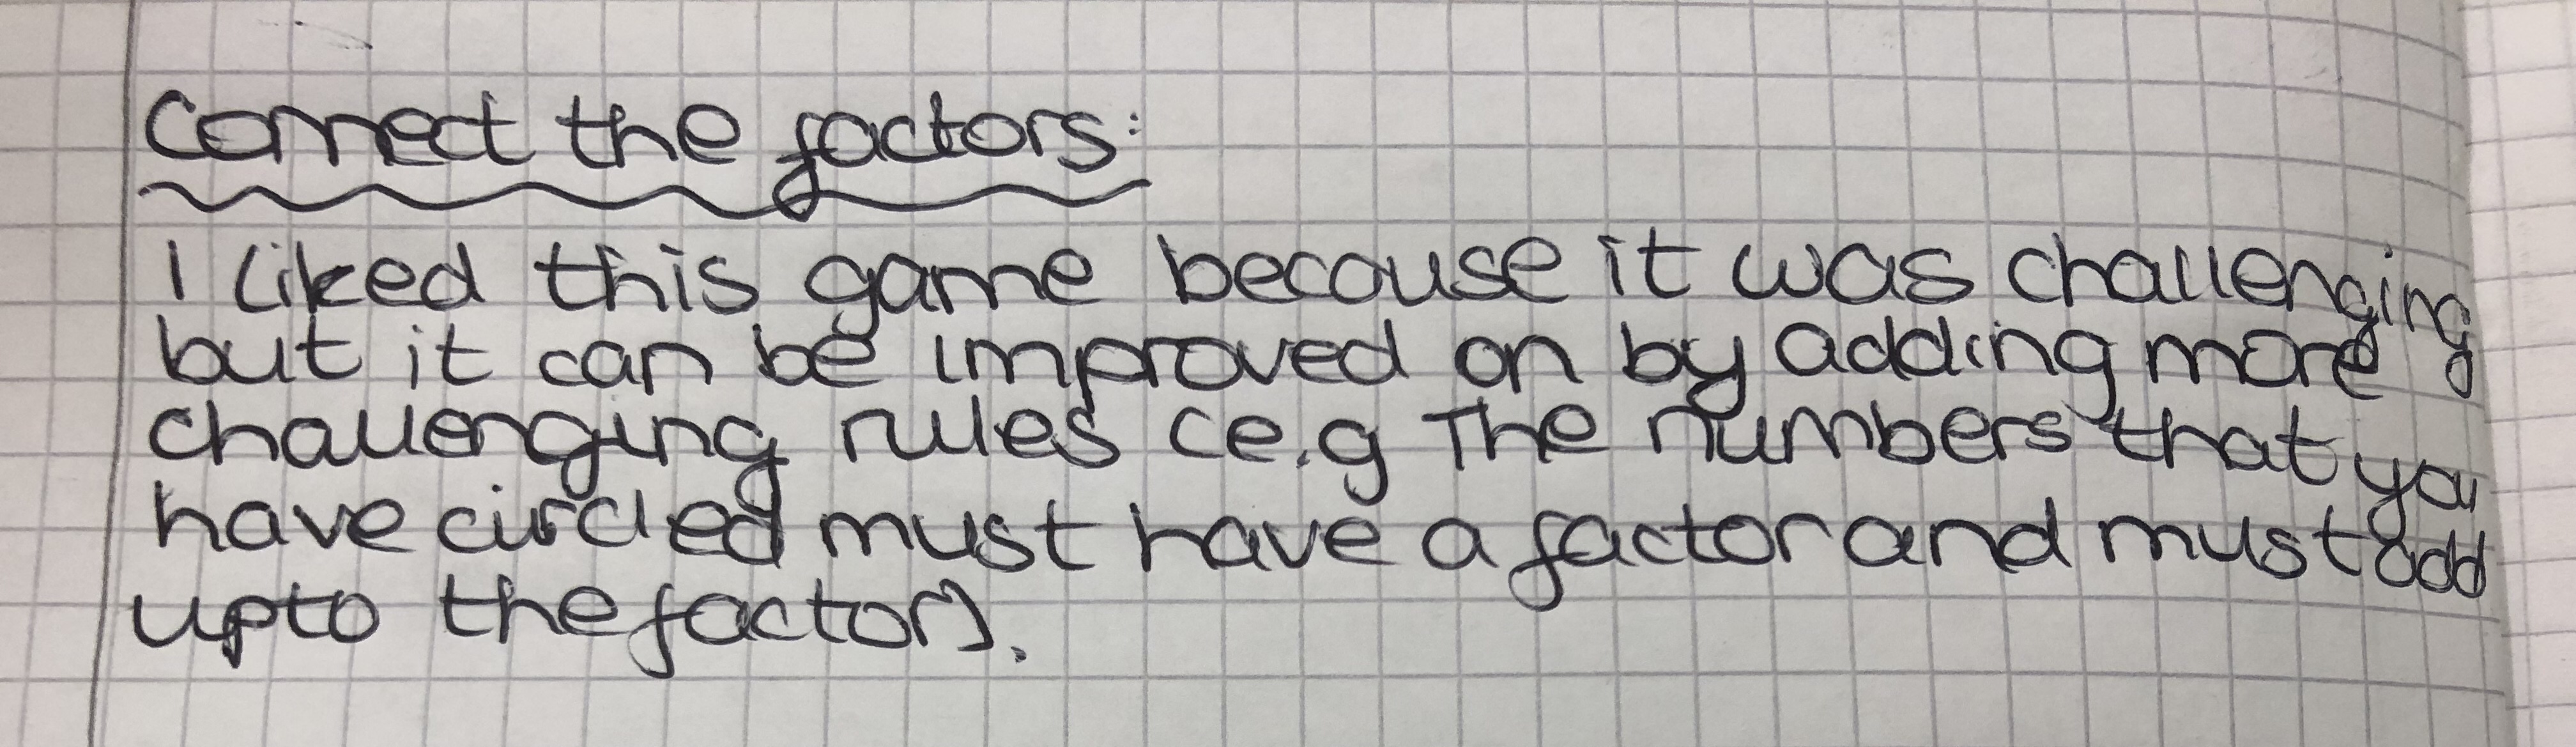 Connect the factors:
I liked this game because it was challenging
but it can be improved on by adding more
challenging rules (e.g The numbers that you
have circled must have a factor and must add
upto the factor).